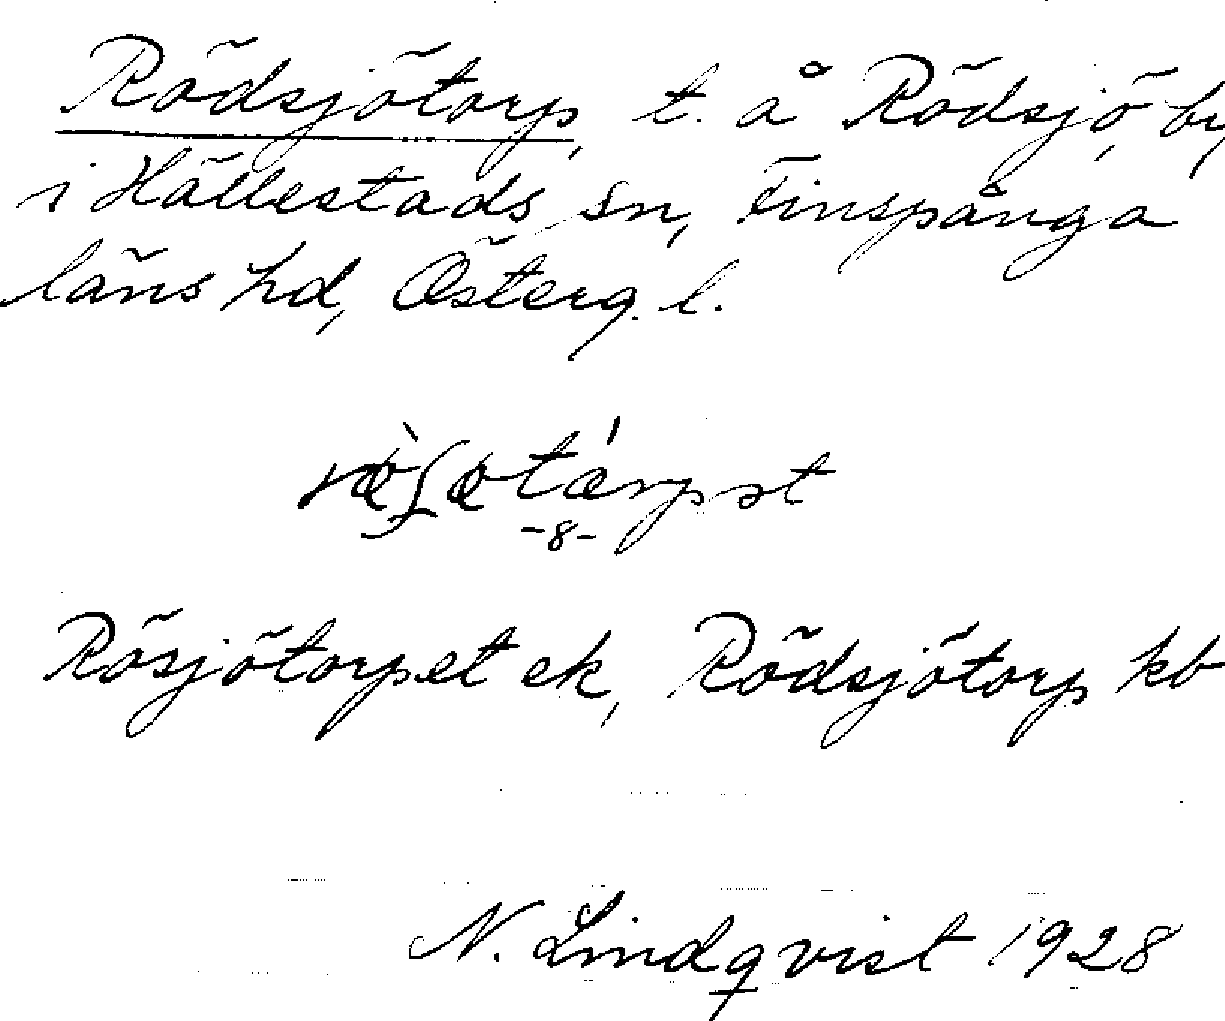 Rödsjötorp, t. å Rödsjö, by
i Hällestads sn, Finspånga
läns hd, Österg. l.
-8-
Rösjötorpet ek, Rödsjötorp kb
N. Lindqvist 1928